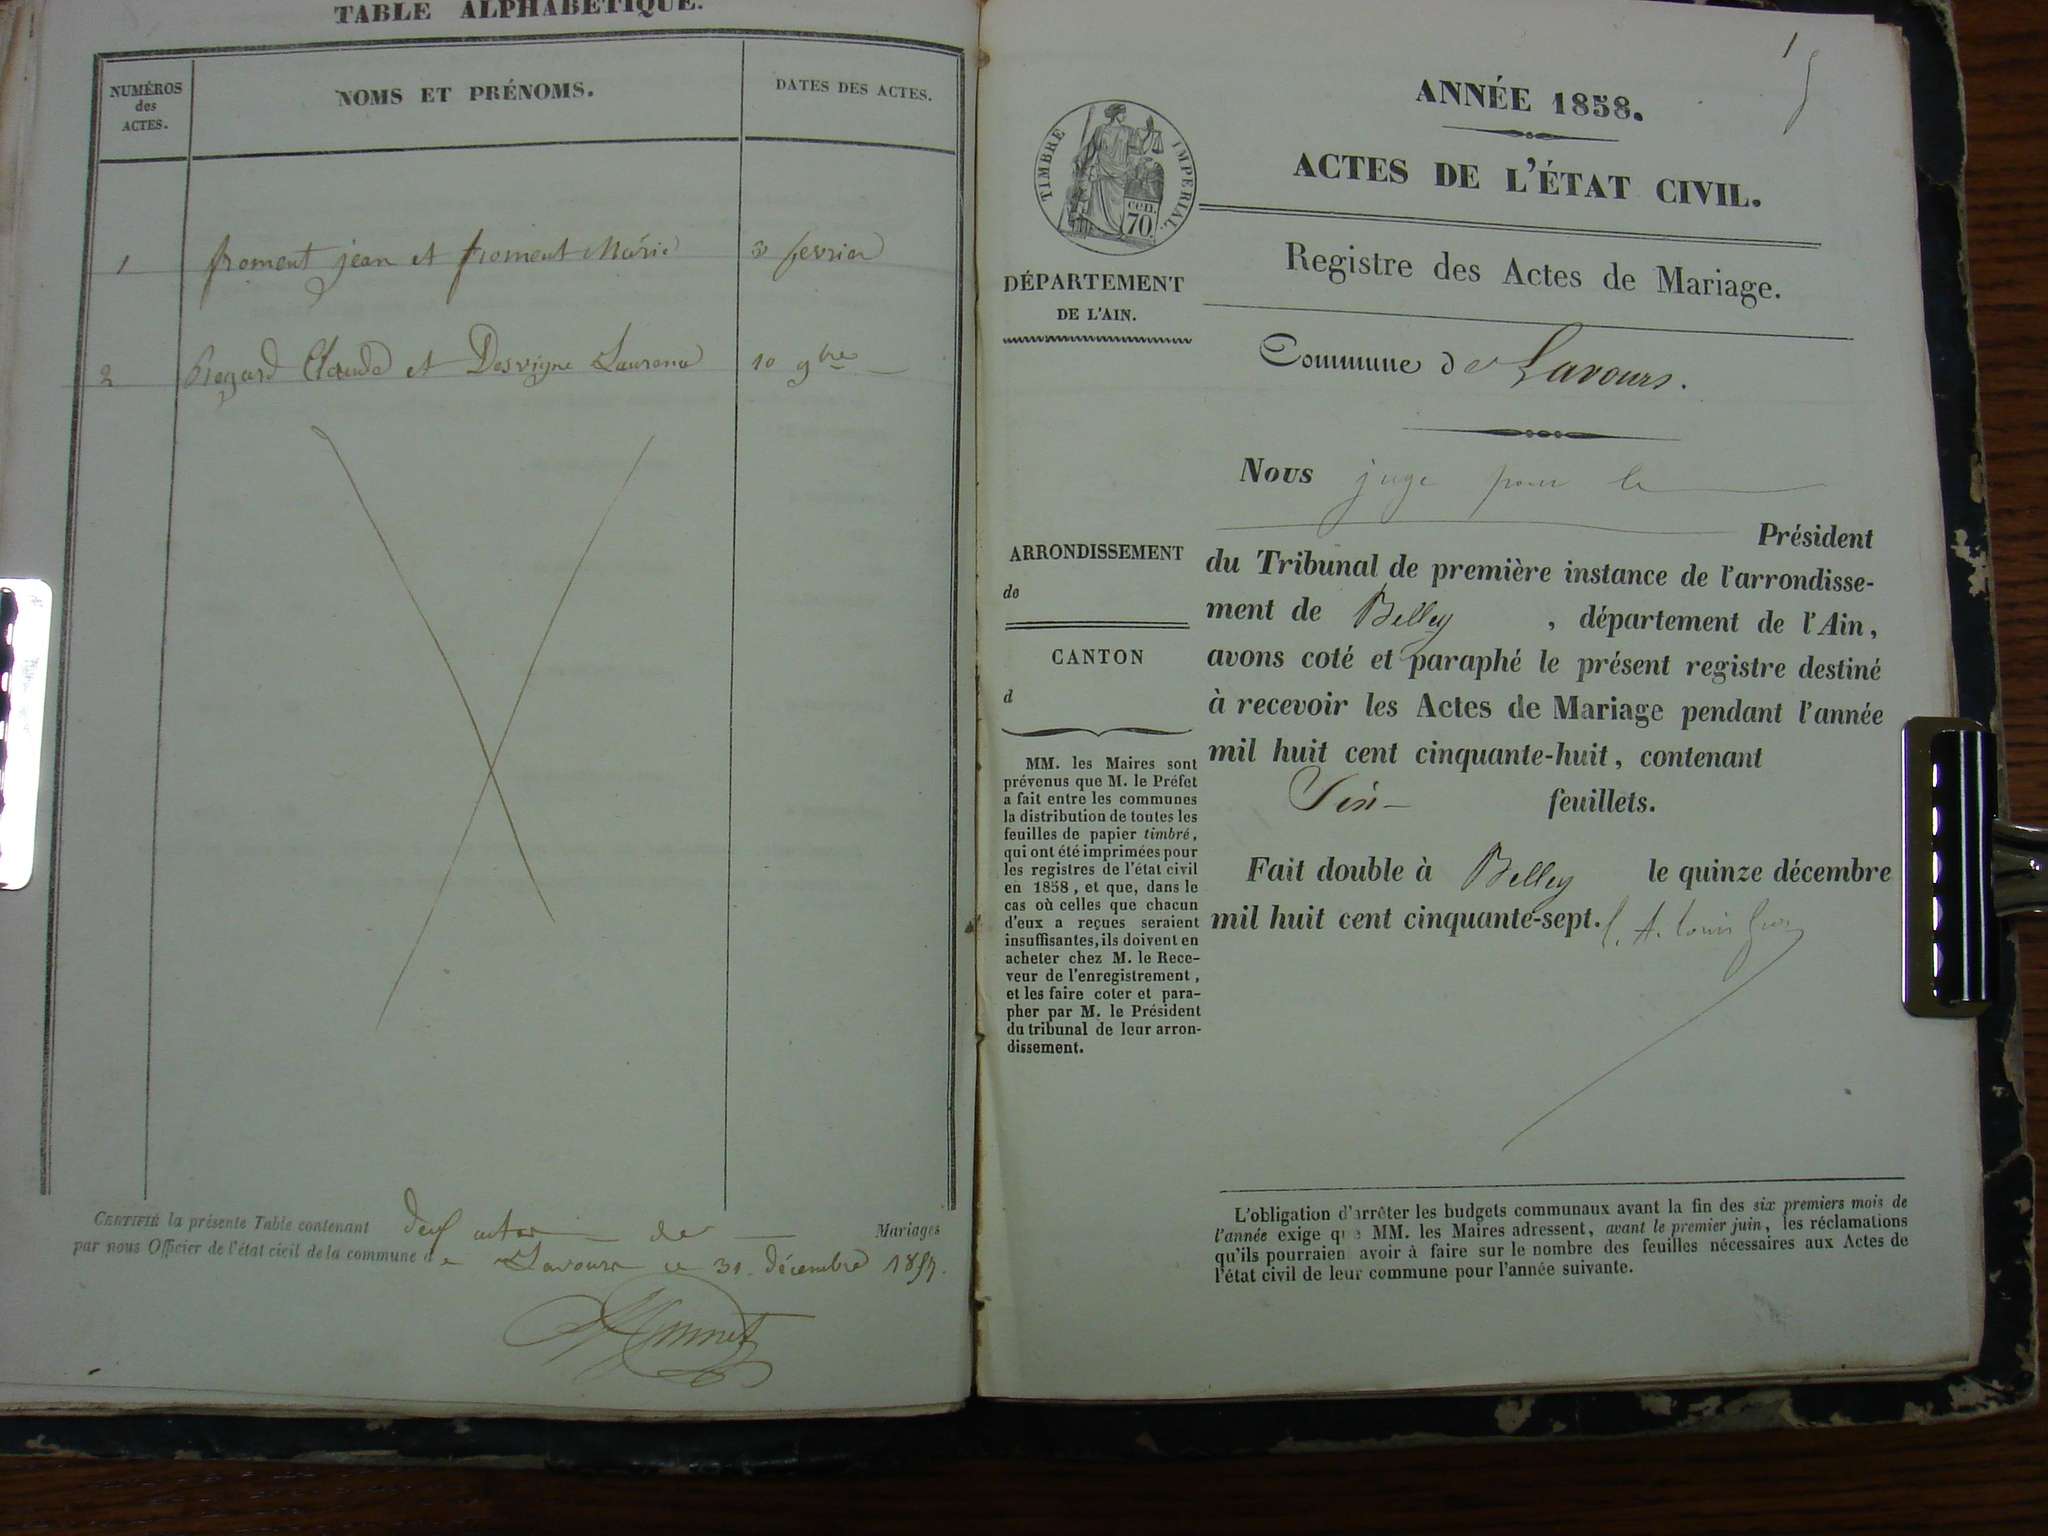 TABLE ALPHABÉTIQUE.
NUMÉROS
des
ACTES.
NOMS ET PRÉNOMS.
DATES DES ACTES.
1 froment jean et froment Marie 3 fevrier
2 Regard Claude et Desvigne Laurence 10 9bre
CERTIFIÉ la présente Table contenant deux actes de Mariages
par nous Officier de l'état civil de la commune de Lavours ce 31 décembre 1857.
Monnet
1
ANNÉE 1858.
ACTES DE L'ÉTAT CIVIL.
TIMBRE IMPÉRIAL.
cen.
70.
Registre des Actes de Mariage.
DÉPARTEMENT
DE L'AIN.
Commune de Lavours.
Nous juge pour le
Président
du Tribunal de première instance de l'arrondisse-
ment de Belley , département de l'Ain,
avons coté et paraphé le présent registre destiné
à recevoir les Actes de Mariage pendant l'année
mil huit cent cinquante-huit, contenant
Six feuillets.
Fait double à Belley le quinze décembre
mil huit cent cinquante-sept.
ARRONDISSEMENT
de
CANTON
d
MM. les Maires sont
prévenus que M. le Préfet
a fait entre les communes
la distribution de toutes les
feuilles de papier timbré,
qui ont été imprimées pour
les registres de l'état civil
en 1858, et que, dans le
cas où celles que chacun
d'eux a reçues seraient
insuffisantes, ils doivent en
acheter chez M. le Rece-
veur de l'enregistrement,
et les faire coter et para-
pher par M. le Président
du tribunal de leur arron-
dissement.
L'obligation d'arrêter les budgets communaux avant la fin des six premiers mois de
l'année exige que MM. les Maires adressent, avant le premier juin, les réclamations
qu'ils pourraient avoir à faire sur le nombre des feuilles nécessaires aux Actes de
l'état civil de leur commune pour l'année suivante.